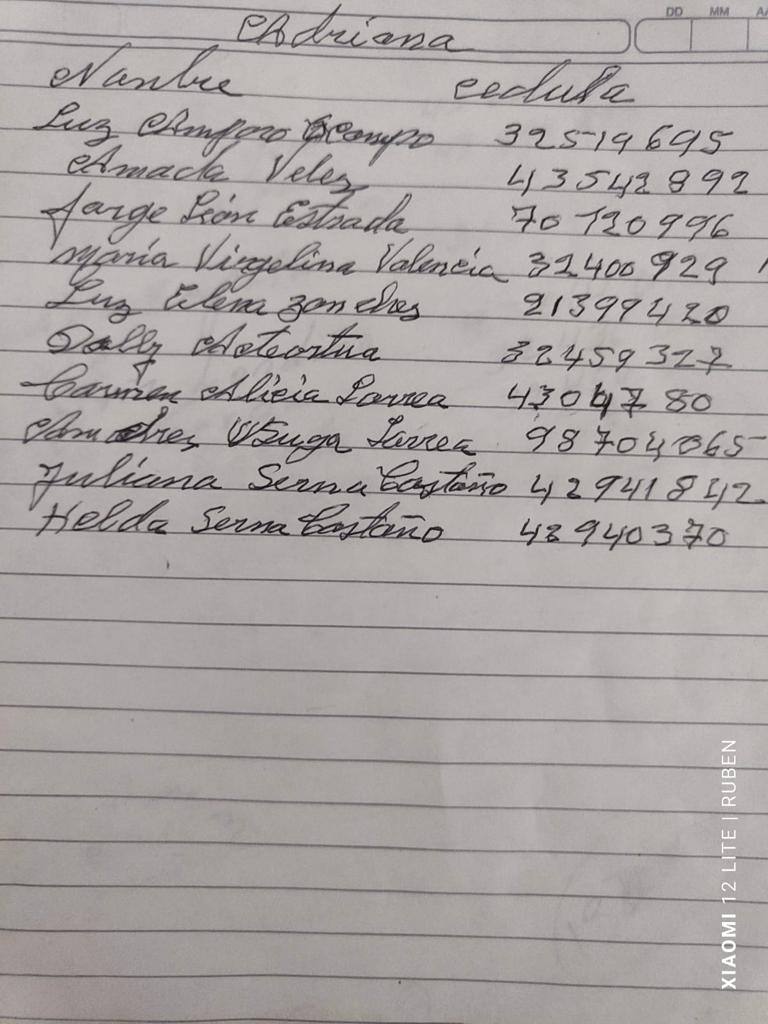 DD MM
Adriana
Nanbre cedula
Luz Amparo Ocampo 32519695
Amada Velez 43542892
Jorge León Estrada 70120996
María Virgelina Valencia 32400929
Luz Elena zanches 21399420
Dolly Acteortua 32459327
Carmen Alicia Larrea 43047780
Andres Usuga Larrea 98704065
Juliana Serna Castaño 42941842
Helda Serna Castaño 42940370
XIAOMI 12 LITE | RUBEN